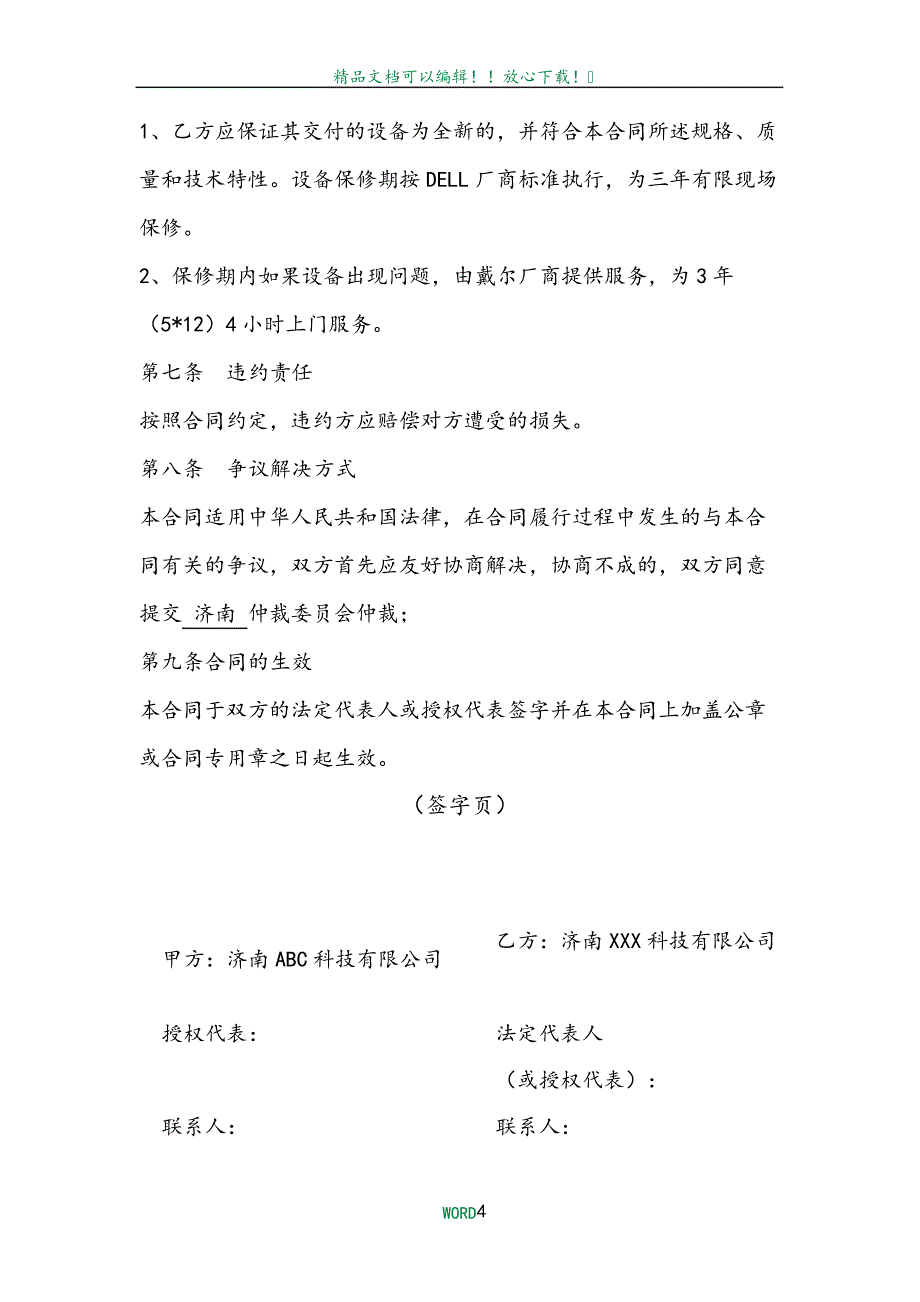 精品文档可以编辑！！放心下载！
1、乙方应保证其交付的设备为全新的，并符合本合同所述规格、质
量和技术特性。设备保修期按 DELL 厂商标准执行，为三年有限现场
保修。
2、保修期内如果设备出现问题，由戴尔厂商提供服务，为 3 年
（5*12）4 小时上门服务。
第七条　违约责任
按照合同约定，违约方应赔偿对方遭受的损失。
第八条　争议解决方式
本合同适用中华人民共和国法律，在合同履行过程中发生的与本合
同有关的争议，双方首先应友好协商解决，协商不成的，双方同意
提交 济南 仲裁委员会仲裁；
第九条合同的生效
本合同于双方的法定代表人或授权代表签字并在本合同上加盖公章
或合同专用章之日起生效。
（签字页）
甲方：济南 ABC 科技有限公司
乙方：济南 XXX 科技有限公司
授权代表：
法定代表人
（或授权代表）：
联系人：
联系人：
WORD4